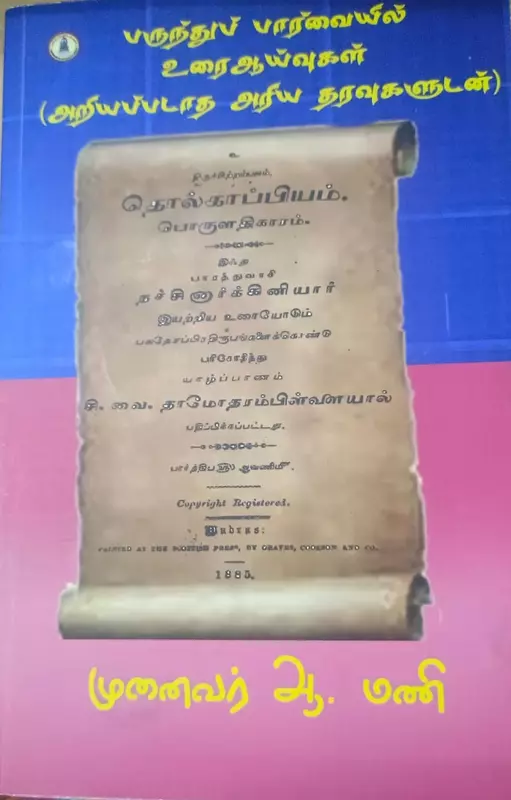 பருந்துப் பார்வையில்
உரைஆய்வுகள்
(அறியப்படாத அரிய தரவுகளுடன்)
உ
தொல்காப்பியம்.
பொருளதிகாரம்.
இஃது
பாரத்துவாசி
நச்சினார்க்கினியார்
இயற்றிய உரையோடும்
பலதேசப்பிரதிரூபங்களைக்கொண்டு
பரிசோதித்து
யாழ்ப்பாணம்
சி. வை. தாமோதரம்பிள்ளையால்
பதிப்பிக்கப்பட்டது.
Copyright Registered.
Madras:
PRINTED AT THE SCOTTISH PRESS, BY GRAVES, COOKSON AND CO.,
1885.
முனைவர் ஆ. மணி